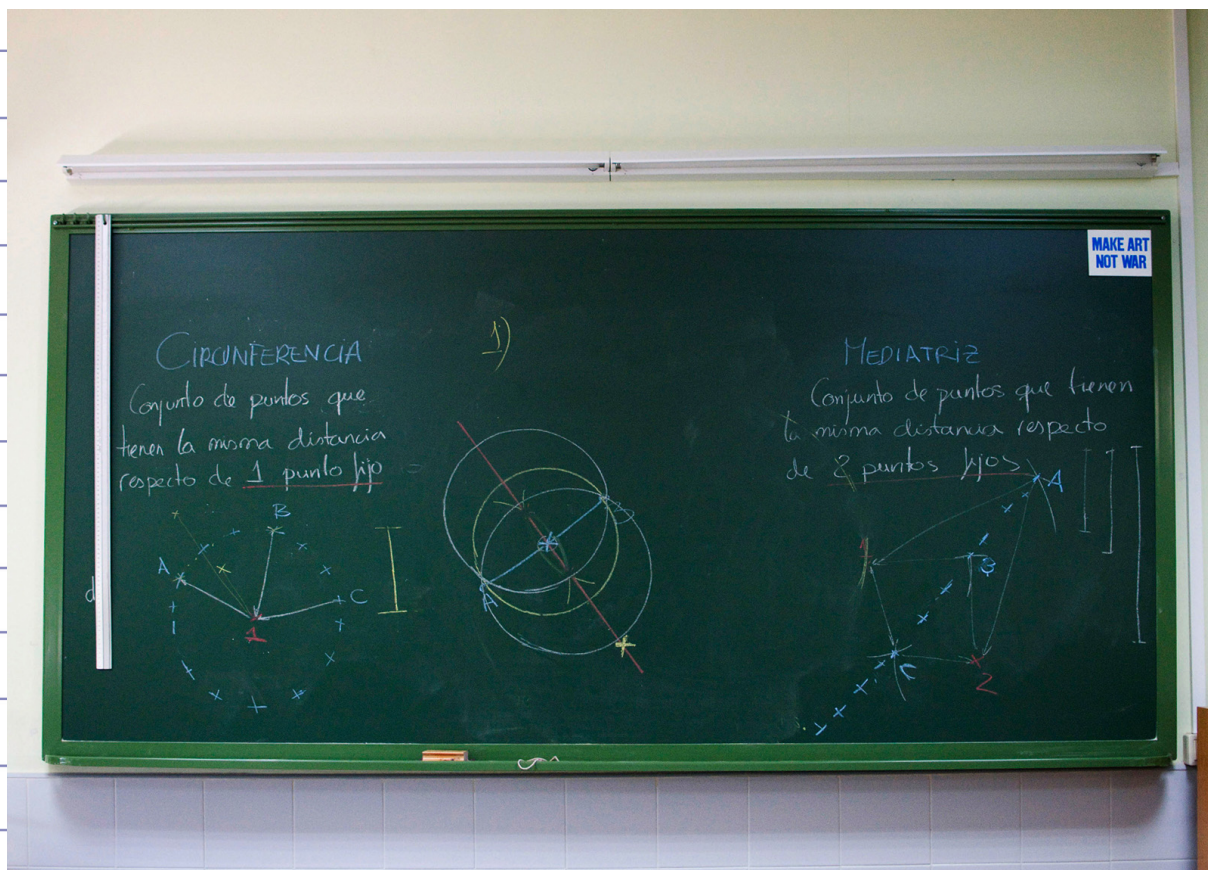 MAKE ART
NOT WAR
CIRCUNFERENCIA
Conjunto de puntos que
tienen la misma distancia
respecto de 1 punto fijo =
A
B
C
1
d
1)
A
B
MEDIATRIZ
Conjunto de puntos que tienen
la misma distancia respecto
de 2 puntos fijos
A
1
B
C
2